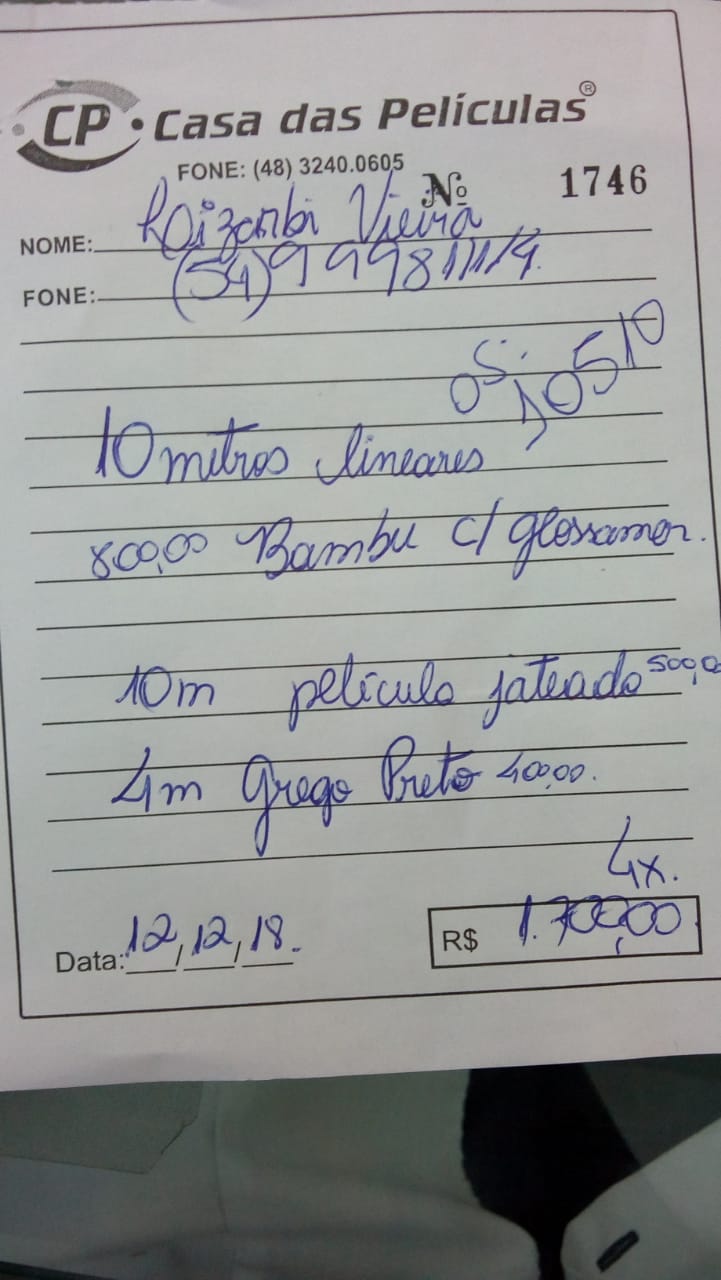 CP • Casa das Películas®
FONE: (48) 3240.0605
Nº 1746
NOME: Vieira
FONE: (54)
OS: 10510
10 metros lineares
800,00 Bambu c/
10m película jateado 500,0
4m Grego Preto 400,00.
4x.
Data: 12/12/18. R$ 1.700,00